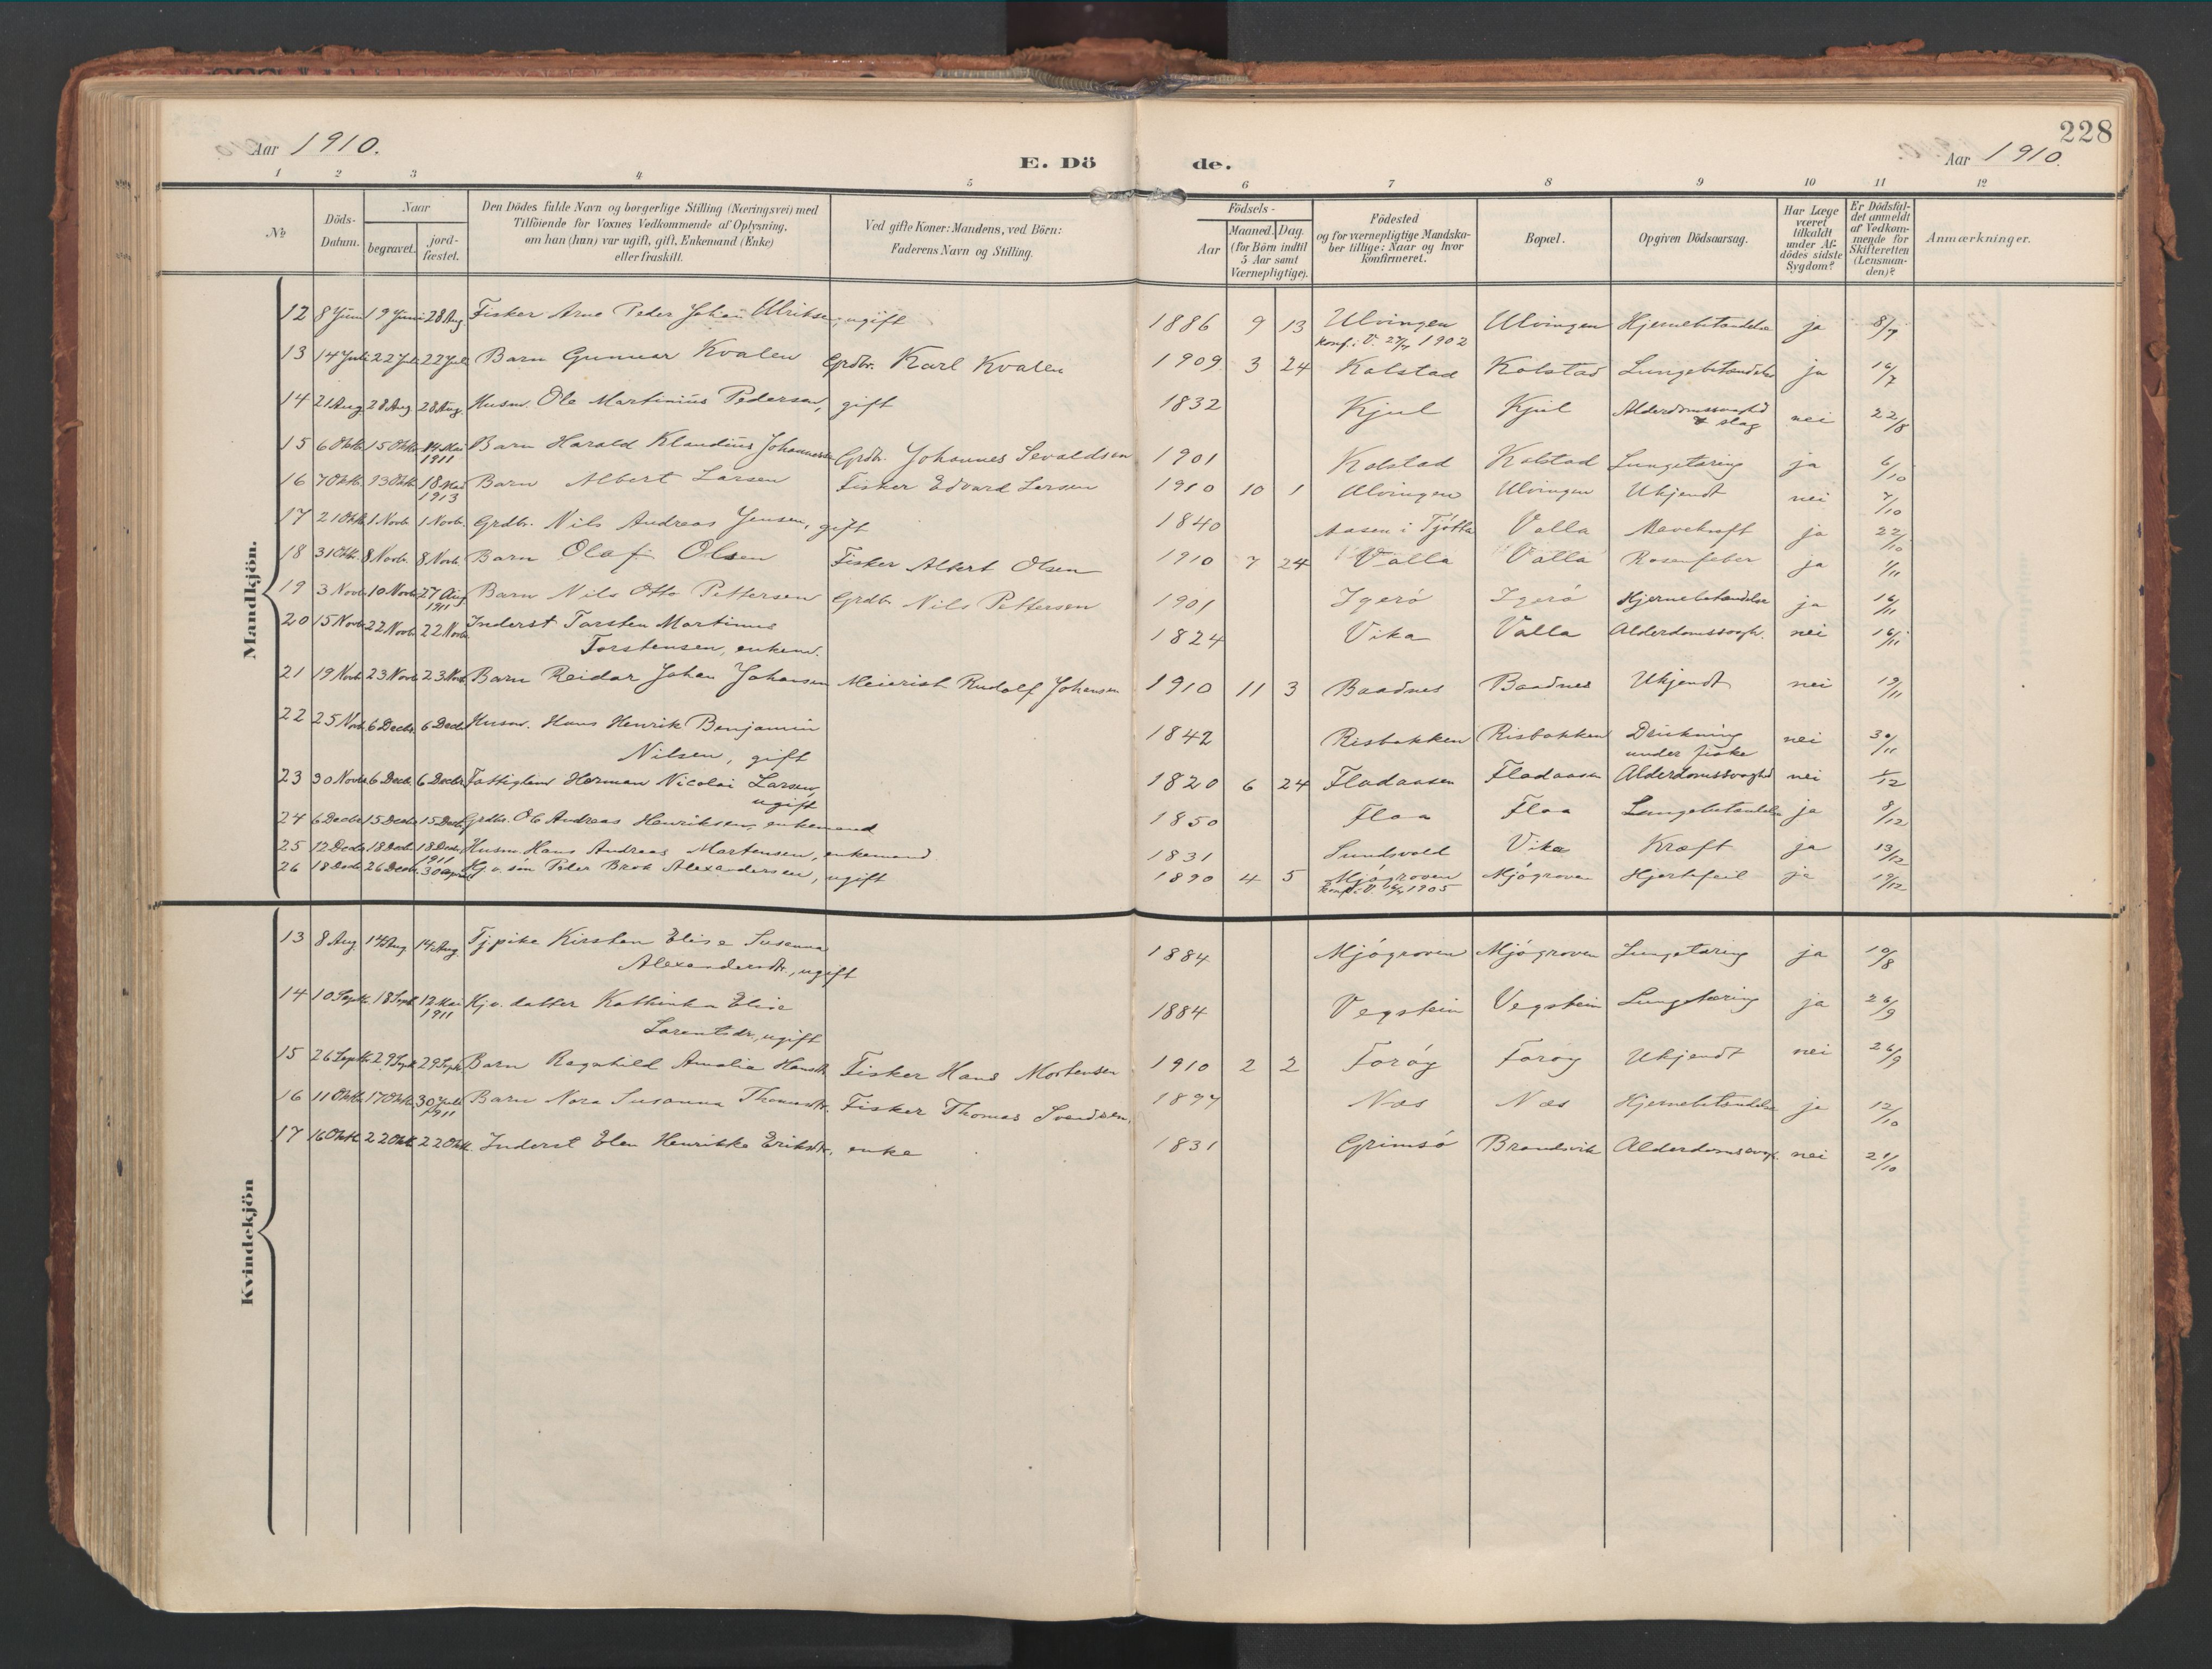 228
Aar 1910.
E. Dö de.
Aar 1910.
1 2 3 4 5 6 7 8 9 10 11 12
№
Döds-
Datum.
Naar
begravet.
jord-
fæstet.
Den Dödes fulde Navn og borgerlige Stilling (Næringsvei) med
Tilföiende for Voxnes Vedkommende af Oplysning,
om han (hun) var ugift, gift, Enkemand (Enke)
eller fraskilt.
Ved gifte Koner: Mandens, ved Börn:
Faderens Navn og Stilling.
Födsels-
Aar
Maaned. Dag.
(for Börn indtil
5 Aar samt
Værnepligtige).
Födested
og for værnepligtige Mandska-
ber tillige: Naar og hvor
konfirmeret.
Bopæl.
Opgiven Dödsaarsag.
Har Læge
været
tilkaldt
under Af-
dödes sidste
Sygdom?
Er Dödsfal-
det anmeldt
af Vedkom-
mende for
Skifteretten
(Lensman-
den)?
Anmærkninger.
Mandkjön.
12 8 Juni 19 Juni 28 Aug. Fisker Arne Peder Johan Ulriksen, ugift 1886 9 13 Ulvingen Ulvingen Hjernebetændelse ja 8/7
konf. i V. 27/7 1902
13 14 Juli 22 Juli 22 Juli Barn Gunnar Kvalen Grdbr. Karl Kvalen 1909 3 24 Kolstad Kolstad Lungebetændelse ja 16/7
14 21 Aug 28 Aug 28 Aug. Husm. Ole Martinius Pedersen, gift 1832 Kjul Kjul Alderdomssvaghd nei 22/8
& slag
15 6 Oktb. 15 Oktb. 14 Mai Barn Harald Klaudius Johannessen Grdbr. Johannes Sevaldsen 1901 Kolstad Kolstad Lungetæring ja 6/10
1911
16 7 Oktb. 23 Oktb. 18 Mai Barn Albert Larsen Fisker Edvard Larsen 1910 10 1 Ulvingen Ulvingen Ukjendt nei 7/10
1913
17 21 Oktb. 1 Novb. 1 Novb. Grdbr. Nils Andreas Jensen, gift 1840 Aasen i Tjötta Valla Mavekræft ja 22/10
18 31 Oktb. 8 Novb. 8 Novb. Barn Olaf Olsen Fisker Albert Olsen 1910 7 24 Valla Valla Rosenfeber ja 1/11
19 3 Novb. 10 Novb. 27 Aug Barn Nils Otto Pettersen Grdbr. Nils Pettersen 1901 Igerö Igerö Hjernebetændelse ja 16/11
1911
20 15 Novb. 22 Novb. 22 Novb. Inderst Torsten Martinus 1824 Vika Valla Alderdomssvagh. nei 16/11
Torstensen, enkem.
21 19 Novb. 23 Novb. 23 Novb. Barn Reidar Johan Johansen Meierist Rudolf Johansen 1910 11 3 Baadnes Baadnes Ukjendt nei 19/11
22 25 Novb. 6 Decbr. 6 Decbr. Husm. Hans Henrik Benjamin 1842 Risbakken Risbakken Drukning nei 30/11
Nilsen, gift under fiske
23 30 Novb. 6 Decb. 6 Decbr. Fattiglem Herman Nicolai Larsen, 1820 6 24 Fladaasen Fladaasen Alderdomssvaghd nei 1/12
ugift
24 6 Decbr. 15 Decbr. 15 Decb. Grdbr. Ole Andreas Henriksen, enkemand 1850 Floa Floa Lungebetændelse ja 8/12
25 12 Decb. 18 Decb. 18 Decb. Husm. Hans Andreas Martensen, enkemand 1831 Sundsvold Vika Kræft ja 13/12
1911
26 18 Decb. 26 Decb. 30 April Kj.v. sön Peder Brok Alexandersen, ugift 1890 4 5 Mjögroven Mjögroven Hjertefeil ja 19/12
konf. i V. 1905
Kvindekjön
13 8 Aug 14 Aug 14 Aug. Tj.pike Kirsten Elise Susanna 1884 Mjögroven Mjögroven Lungetæring ja 10/8
Alexandersdtr., ugift
14 10 Septb. 18 Septb. 12 Mai Kj.v. datter Kathinka Elise 1884 Vegstein Vegstein Lungetæring ja 26/9
1911
Larentsdr., ugift
15 26 Septbr. 29 Septb. 29 Septb. Barn Ragnhild Amalia Hansdtr. Fisker Hans Mortensen 1910 2 2 Foröy Foröy Ukjendt nei 26/9
16 11 Oktbr. 17 Oktbr. 30 Juli Barn Nora Susanna Thomasdtr. Fisker Thomas Svendsen. 1897 Næs Næs Hjernebetændelse ja 12/10
1911
17 16 Oktb. 22 Oktb. 22 Oktb. Inderst Elen Henrikke Eriksdtr., enke 1831 Grimsö Brandsvik Alderdomssvagh. nei 21/10